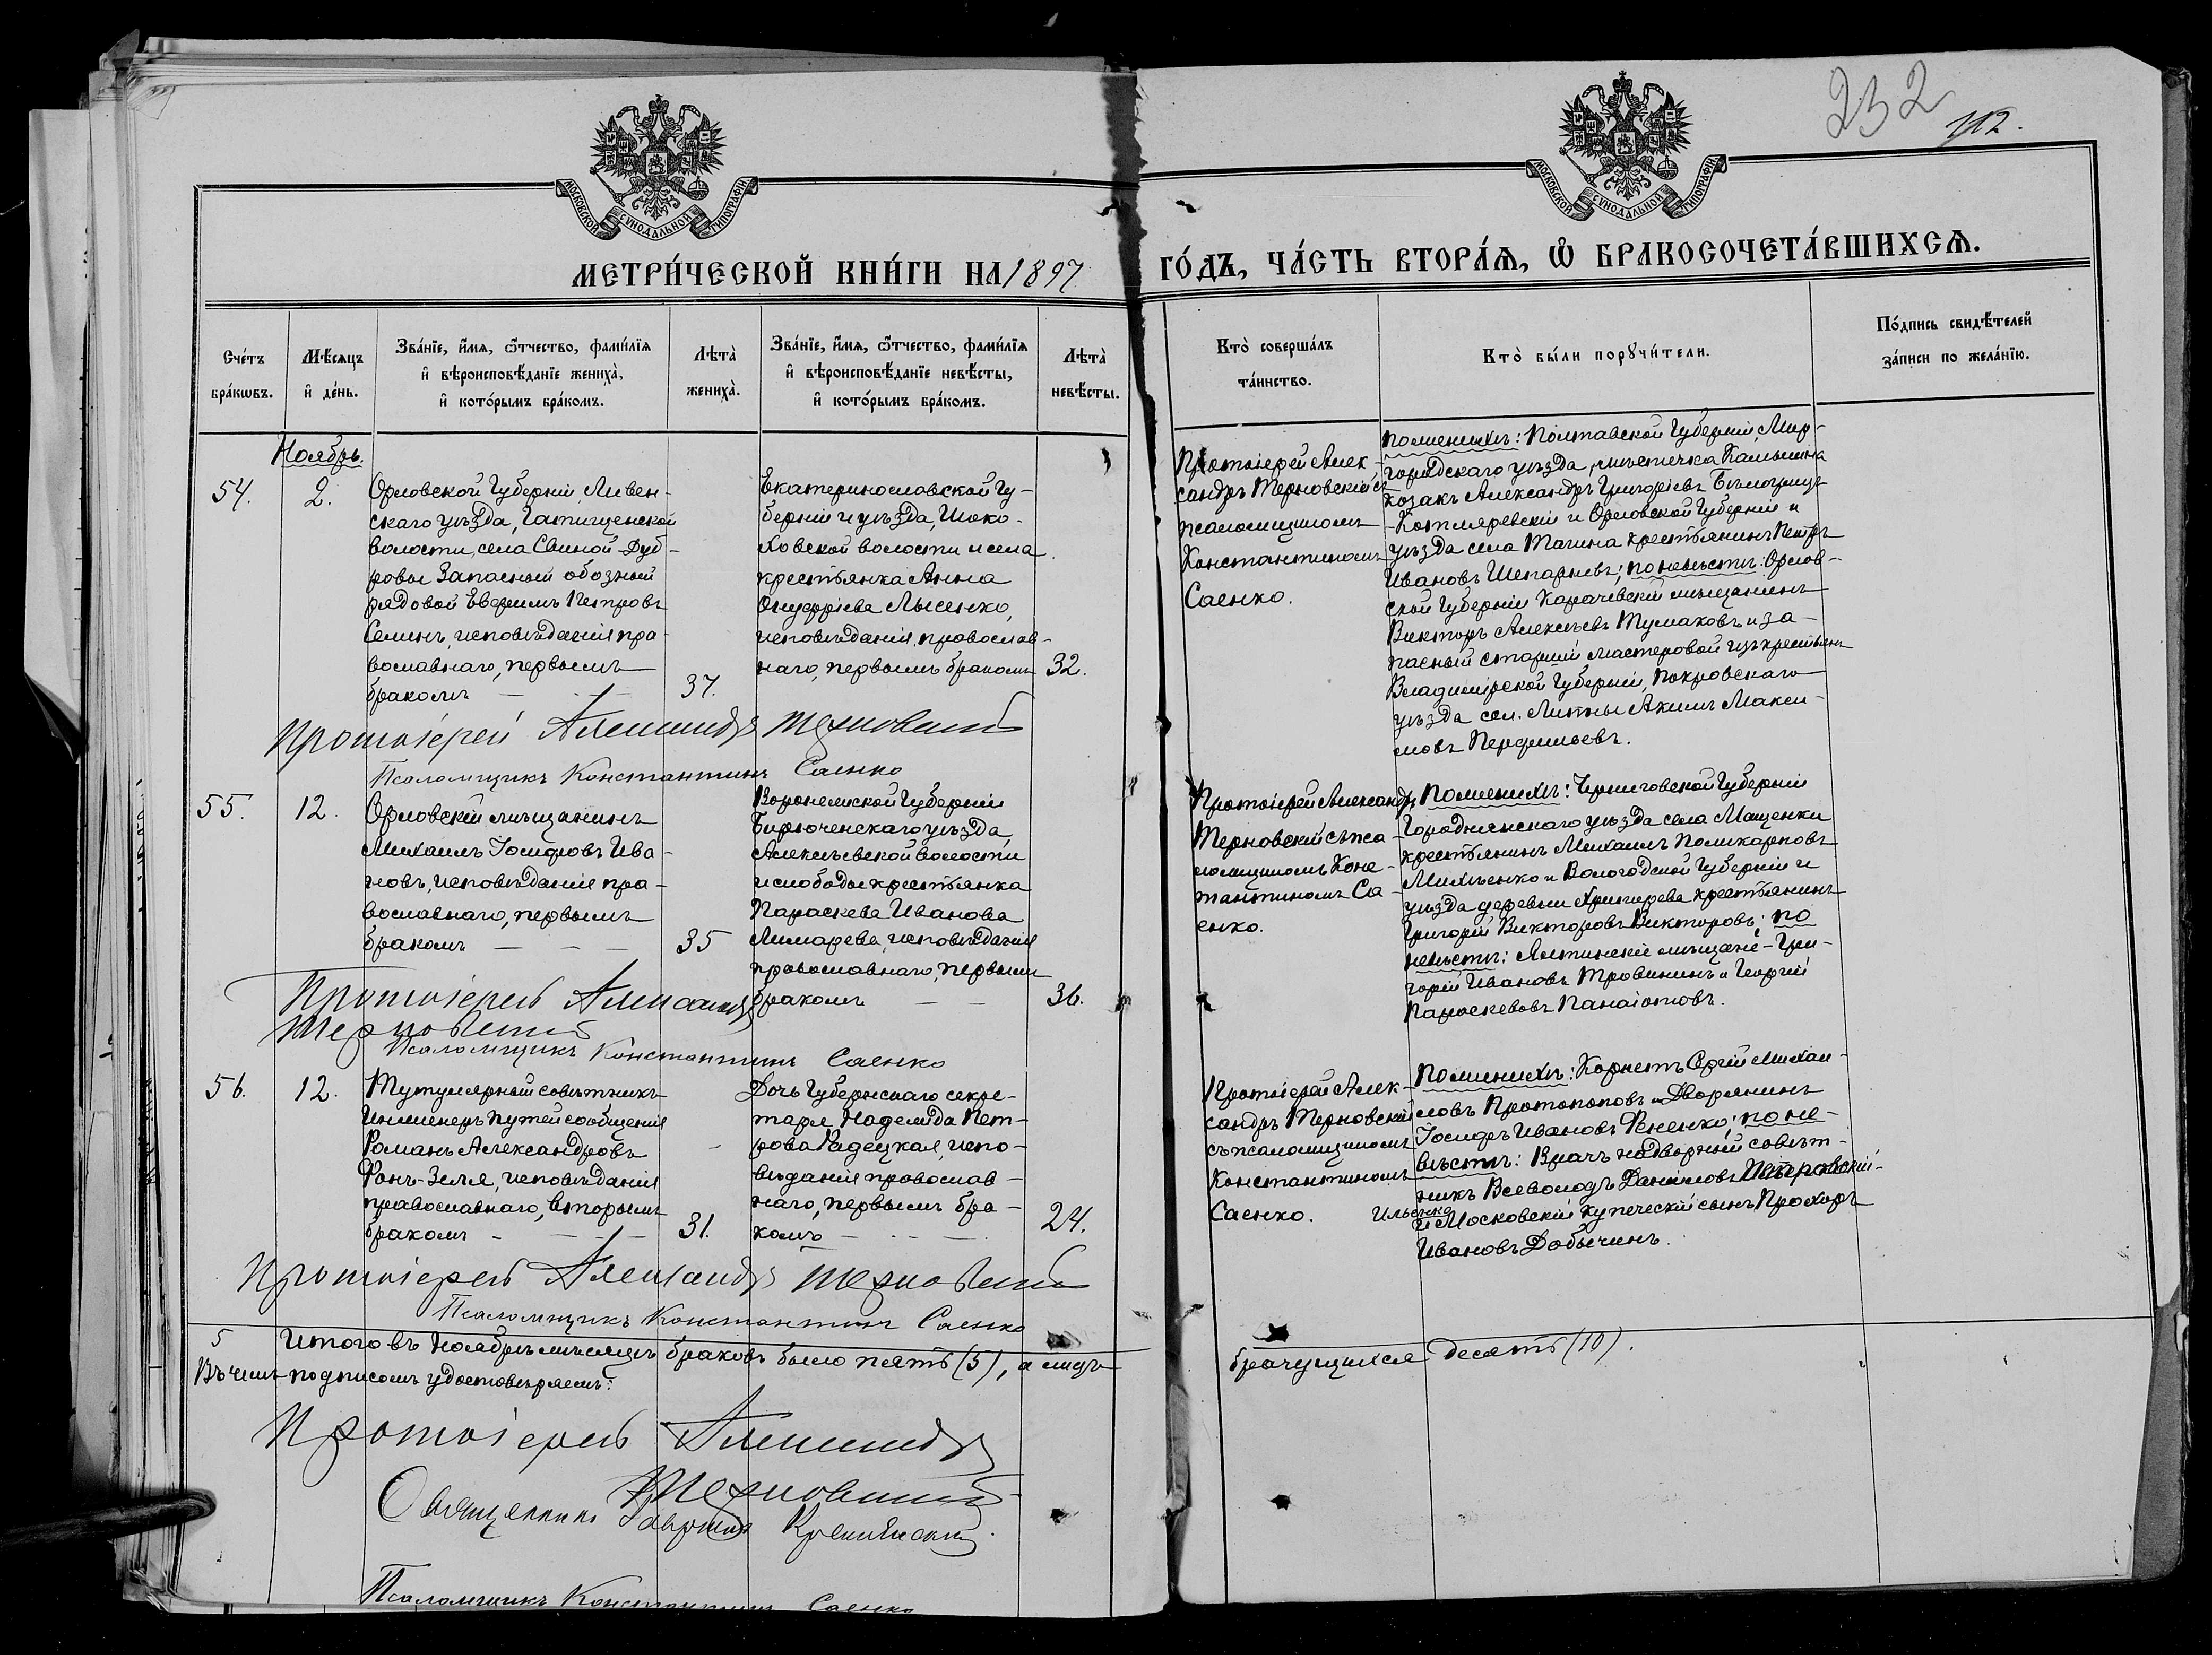 232
112.
МОСКОВСКОЙ СѴНОДАЛЬНОЙ ТИПОГРАФІИ
МОСКОВСКОЙ СѴНОДАЛЬНОЙ ТИПОГРАФІИ
МЕТРИ́ЧЕСКОЙ КНИ́ГИ НА 1897 ГО́ДЪ, ЧА́СТЬ ВТОРА́Я, Ѽ БРАКОСОЧЕТА́ВШИХСЯ.
Сче́тъ
бра́кѡвъ.
Мѣ́сяцъ
и҆ де́нь.
Зва́нїе, и҆́мя, ѻ҆́тчество, фами́лїя
и҆ вѣроисповѣ́данїе жениха̀,
и҆ кото́рымъ бра́комъ.
Лѣта̀
жениха̀.
Зва́нїе, и҆́мя, ѻ҆́тчество, фами́лїя
и҆ вѣроисповѣ́данїе невѣ́сты,
и҆ кото́рымъ бра́комъ.
Лѣта̀
невѣ́сты.
Кто̀ соверша́лъ
та́инство.
Кто̀ бы́ли порꙋчи́тели.
По́дпись свидѣ́телей
за́писи по жела́нїю.
Ноябрь.
54.
2.
Орловской Губерніи, Ливен-
скаго уѣзда, Гатищенской
волости, села Свиной-Дуб-
ровы Запасный обозный
рядовой Ефимъ Петровъ
Семинъ, исповѣданія пра-
вославнаго, первымъ
бракомъ
37.
Екатеринославской Гу-
берніи и уѣзда,
ховской волости и села
крестьянка Анна
Онуфріева Лысенко,
исповѣданія православ-
наго, первымъ бракомъ
32.
Протоіерей Алек-
сандръ Терновскій съ
псаломщикомъ
Константиномъ
Саенко.
По женихѣ: Полтавской Губерніи, Мир-
городскаго уѣзда, мѣстечка Камышна
козакъ Александръ Григорьевъ
-Котляревскій и Орловской Губерніи и
уѣзда села Тагина крестьянинъ Петръ
Ивановъ Шепарневъ; по невѣстѣ: Орлов-
ской Губерніи Карачевскій мѣщанинъ
Викторъ Алексѣевъ Тумаковъ и за-
пасный старшій мастеровой изъ крестьянъ
Владимірской Губерніи, Покровскаго
уѣзда сел. Липны Акимъ Макси-
мовъ Перфильевъ.
Протоіерей Александръ Терновскій
Псаломщикъ Константинъ Саенко
55.
12.
Орловскій мѣщанинъ
Михаилъ Іосифовъ Ива-
новъ, исповѣданія пра-
вославнаго, первымъ
бракомъ
35
Воронежской Губерніи
Бирюченскаго уѣзда,
Алексѣевской волости
и слободы крестьянка
Параскева Иванова
Лимарева, исповѣданія
православнаго, первымъ
бракомъ
36.
Протоіерей Александръ
Терновскій съ пса-
ломщикомъ Конс-
тантиномъ Са-
енко.
По женихѣ: Черниговской Губерніи
Городнянскаго уѣзда села Мащенки
крестьянинъ Михаилъ Поликарповъ
Михѣенко и Вологодской Губерніи и
уѣзда деревни крестьянинъ
Григорій Викторовъ Викторовъ; по
невѣстѣ: Ялтинскіе мѣщане-Гри-
горій Ивановъ Травинъ и Георгій
Параскевовъ Панаіотовъ.
Протоіерей Александръ
Терновскій
Псаломщикъ Константинъ Саенко
56.
12.
Титулярный совѣтникъ
Инженеръ Путей сообщенія
Романъ Александровъ
Фонъ-Зелля, исповѣданія
православнаго, вторымъ
бракомъ
31.
Дочь Губернскаго секре-
таря Надежда Пет-
рова Радецкая, испо-
вѣданія православ-
наго, первымъ бра-
комъ
24.
Протоіерей Алек-
сандръ Терновскій
съ псаломщикомъ
Константиномъ
Саенко.
По женихѣ: Корнетъ Сергій Михаи-
ловъ Протопоповъ и Дворянинъ
Іосифъ Ивановъ Фененко; по не-
вѣстѣ: Врачъ надворный совѣт-
никъ Всеволодъ Даніиловъ Петровскій-
Ильенко
и Московскій купеческій сынъ Прохоръ
Ивановъ Добычинъ.
Протоіерей Александръ Терновскій
Псаломщикъ Константинъ Саенко
5 Итого въ Ноябрѣ мѣсяцѣ браковъ было пять (5), а лицъ брачущихся десять (10).
Въ чемъ подписомъ удостовѣряемъ:
Протоіерей Александръ
Терновскій
Священникъ
Псаломщикъ Константинъ Саенко